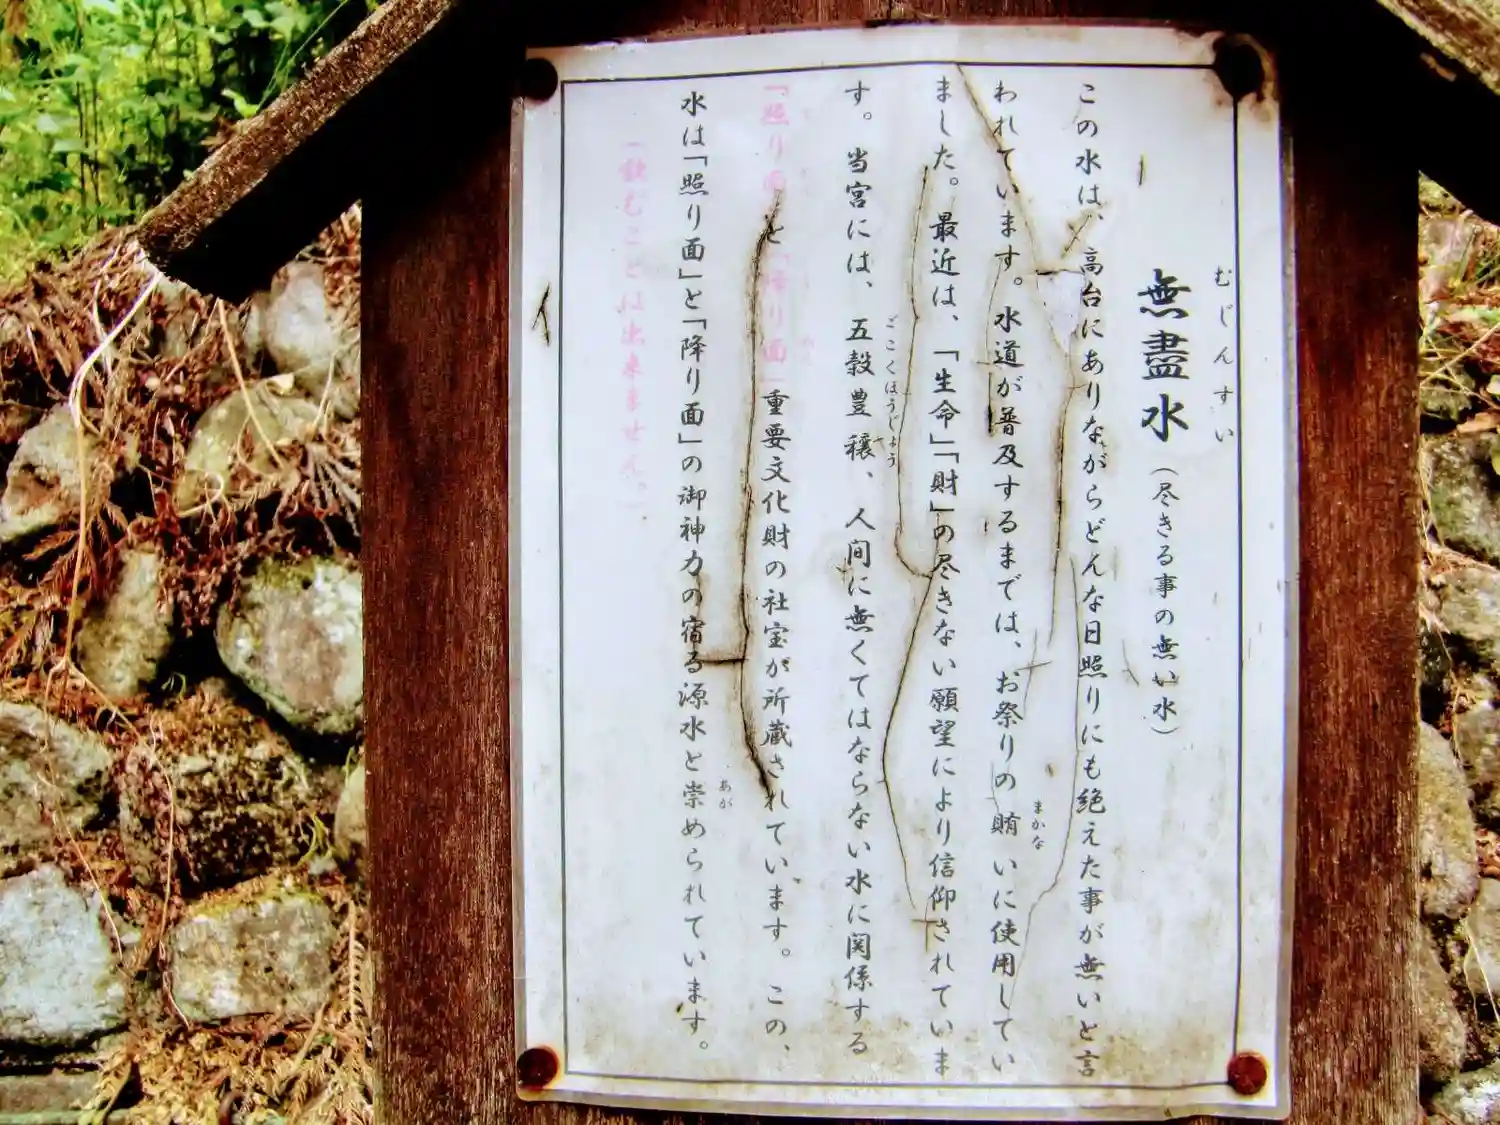 むじんすい
無盡水（尽きる事の無い水）
この水は、高台にありながらどんな日照りにも絶えた事が無いと言
われています。水道が普及するまでは、お祭りの賄いに使用してい
まかな
ました。最近は、「生命」「財」の尽きない願望により信仰されていま
す。当宮には、五穀豊穣、人間に無くてはならない水に関係する
ごこくほうじょう
「照り面」と「降り面」重要文化財の社宝が所蔵されています。この、
水は「照り面」と「降り面」の御神力の宿る源水と崇められています。
あが
「飲むことは出来ません。」